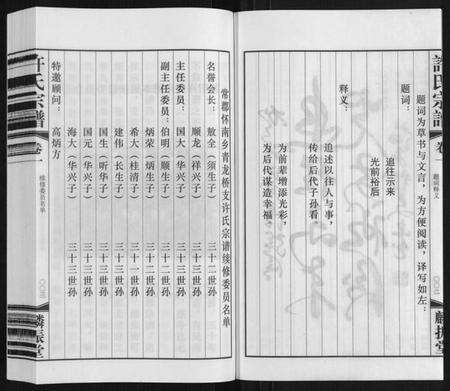 許氏宗譜
卷一
题词释义
麟振堂
题词:
题词为草书与文言,为方便阅读,译写如左:
追往示来
光前裕后
释义:
追述以往人与事,
传给后代子孙看
为前辈增添光彩,
为后代谋造幸福。
常郡怀南乡青龙桥支许氏宗谱续修委员名单
名誉会长:
敖全(省三子) 三十二世孙
主任委员:
国大(华兴子) 三十三世孙
顺龙(祥兴子) 三十三世孙
副主任委员:
伯明(顺生子) 三十二世孙
炳荣(炳生子) 三十二世孙
希大(桂清子) 三十一世孙
建伟(长生子) 三十三世孙
国生(听华子) 三十三世孙
国元(华兴子) 三十三世孙
海大(华兴子) 三十三世孙
特邀顾问:
高炳方
许氏宗谱
卷一
续修委员名单
麟振堂